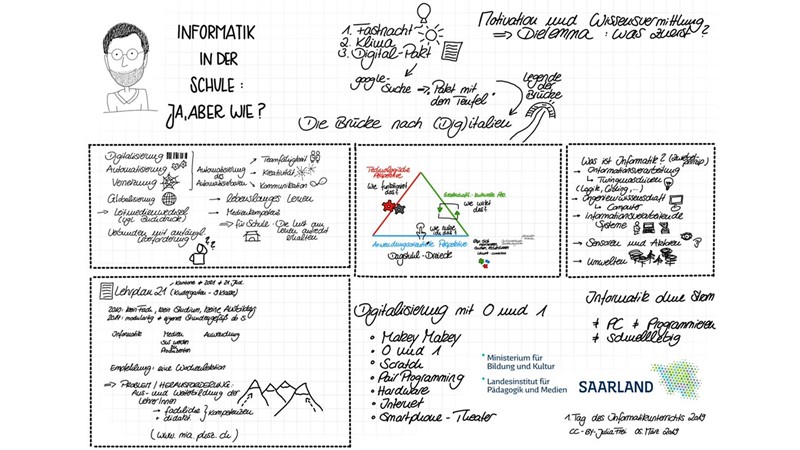 INFORMATIK
IN DER
SCHULE:
JA, ABER WIE?
1. Fastnacht
2. Klima
3. Digital-Pakt
google-
Suche → "Pakt mit
dem Teufel"
Legende
der
Brücke
Die Brücke nach (Dig)italien
Motivation und Wissensvermittlung
⇒ Dilemma: was zuerst?
Digitalisierung
Automatisierung
Vernetzung
Globalisierung
→ Leitmedienwechsel
(vgl. Buchdruck)
Verbunden mit anfängl.
Überforderung
Automatisierung
des
Automatisierbaren
→ Teamfähigkeit
→ Kreativität
→ Kommunikation
→ lebenslanges Lernen
→ Medienkompetenz
⇒ für Schule: Die Lust am
Lernen aufrecht
erhalten
Technologische
Perspektive
Wie funktioniert
das?
Gesellschaftl.-kulturelle Per.
Wie wirkt
das?
Wie nutze
ich das?
Anwendungsorientierte Perspektive
Dagstuhl-Dreieck
Was ist Informatik?
→ Informationsverarbeitung
↳ Turingmaschinen
(Logik, Coding, ...)
→ Ingenieurwissenschaft
↳ Computer
→ Informationsverarbeitende
Systeme
→ Sensoren und Aktoren
→ Umwelten
Lehrplan 21
(Kindergarten - 9. Klasse)
Informatik Medien Anwendung
Empfehlung: eine Wochenlektion
⇒ Problem / Herausforderung:
Aus- und Weiterbildung der
LehrerInnen
→ fachliche
→ didakt.
Kompetenzen
(www.mia.phsz.ch)
Digitalisierung mit 0 und 1
• Makey Makey
• 0 und 1
• Scratch
• Pair Programming
• Hardware
• Internet
• Smartphone-Theater
Informatik ohne Strom
≠ PC ≠ Programmieren
≠ schnelllebig
Ministerium für
Bildung und Kultur
Landesinstitut für
Pädagogik und Medien
SAARLAND
1. Tag des Informatikunterrichts 2019
CC-BY-Julia Frei 05. März 2019